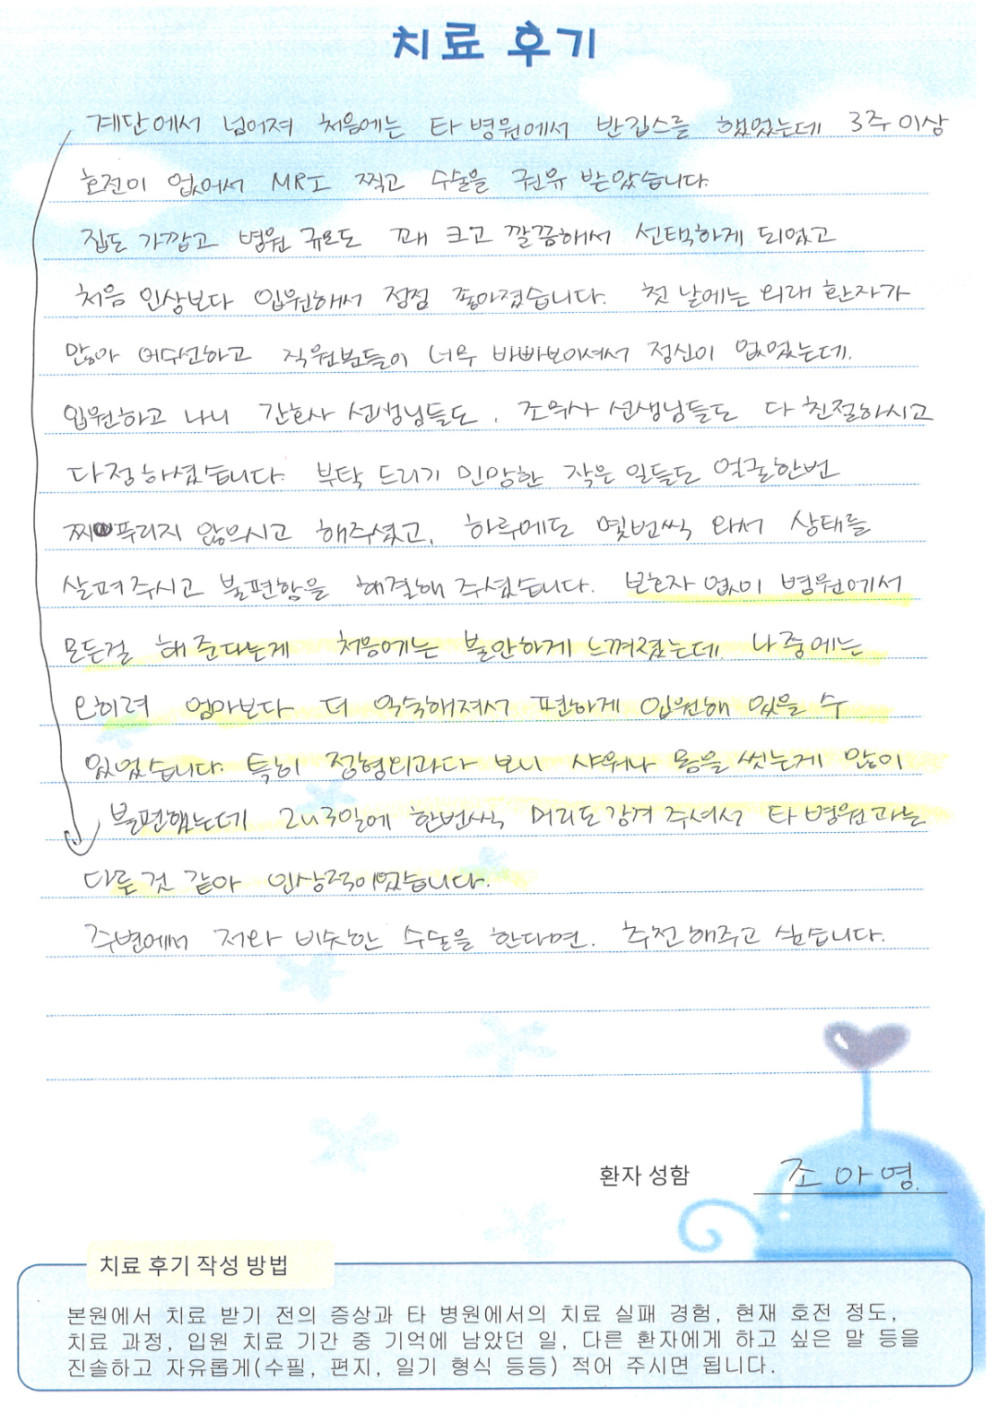 치료 후기
계단에서 넘어져 처음에는 타 병원에서 반깁스를 했었는데 3주 이상
호전이 없어서 MRI 찍고 수술을 권유 받았습니다.
집도 가깝고 병원 규모도 꽤 크고 깔끔해서 선택하게 되었고
처음 인상보다 입원해서 점점 좋아졌습니다. 첫 날에는 외래 환자가
많아 어수선하고 직원분들이 너무 바빠보이셔서 정신이 없었는데.
입원하고 나니 간호사 선생님들도, 조무사 선생님들도 다 친절하시고
다정하셨습니다. 부탁 드리기 민망한 작은 일들도 얼굴한번
찌푸리지 않으시고 해주셨고, 하루에도 몇번씩 와서 상태를
살펴주시고 불편함을 해결해 주셨습니다. 보호자 없이 병원에서
모든걸 해 준다는게 처음에는 불안하게 느껴졌는데. 나중에는
오히려 엄마보다 더 익숙해져서 편하게 입원해 있을 수
있었습니다. 특히 정형외과다 보니 샤워나 몸을 씻는게 많이
불편했는데 2~3일에 한번씩 머리도 감겨 주셔서 타 병원과는
다른 것 같아 인상적이었습니다.
주변에서 저와 비슷한 수술을 한다면. 추천해주고 싶습니다.
환자 성함 조아영.
치료 후기 작성 방법
본원에서 치료 받기 전의 증상과 타 병원에서의 치료 실패 경험, 현재 호전 정도,
치료 과정, 입원 치료 기간 중 기억에 남았던 일, 다른 환자에게 하고 싶은 말 등을
진솔하고 자유롭게(수필, 편지, 일기 형식 등등) 적어 주시면 됩니다.